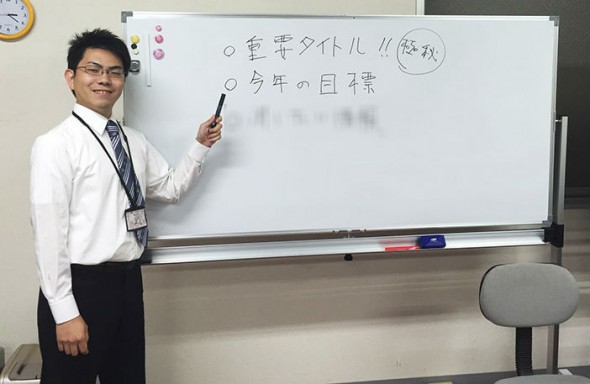 ○重要タイトル!! 極秘
○今年の目標